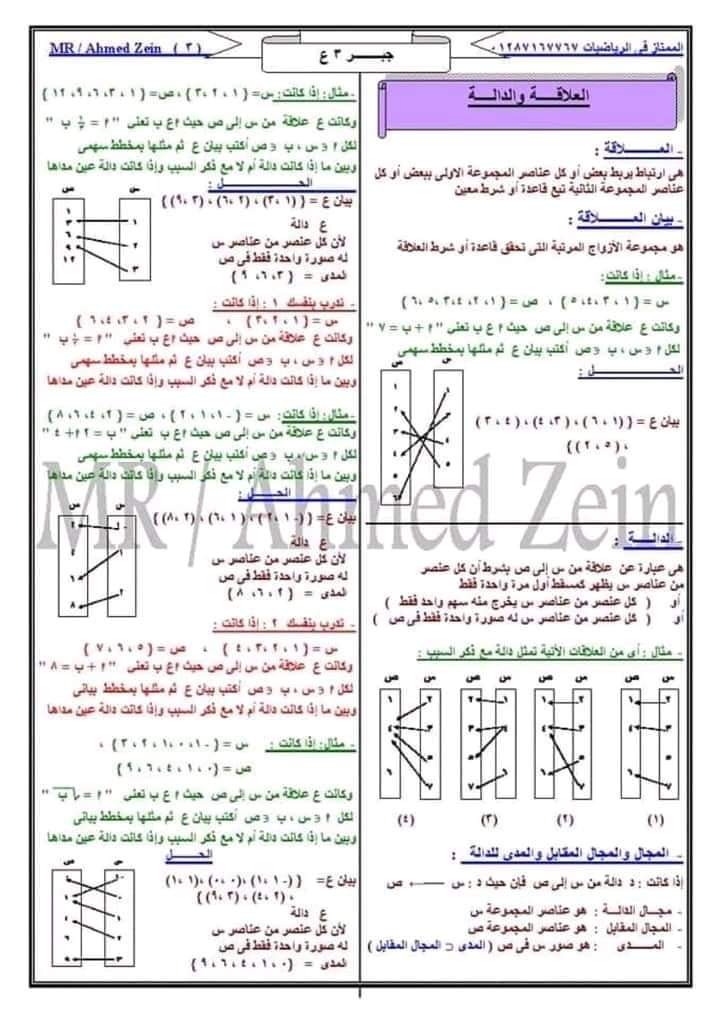 الممتاز فى الرياضيات ٠١٢٨٧١٦٧٧٦٧
جبـــــر ٣ ع
MR / Ahmed Zein ( ٣ )
العلاقـــة والدالـــة
- العـــــــلاقة :
هى ارتباط يربط بعض أو كل عناصر المجموعة الاولى ببعض أو كل
عناصر المجموعة الثانية تبع قاعدة أو شرط معين
- بيان العـــــــلاقة :
هو مجموعة الأزواج المرتبة التى تحقق قاعدة أو شرط العلاقة
- مثال : إذا كانت:
س = { ١ ، ٣ ، ٤ ، ٥ } ، ص = { ١ ، ٢ ، ٣ ، ٤ ، ٥ ، ٦ }
وكانت ع علاقة من س إلى ص حيث أ ع ب تعنى " أ + ب = ٧ "
لكل أ ∈ س ، ب ∈ ص أكتب بيان ع ثم مثلها بمخطط سهمى
الحـــــــــل :
بيان ع = { (١ ، ٦) ، (٣ ، ٤) ، (٤ ، ٣)
، (٥ ، ٢) }
١
٢
٣
٤
٥
٦
١
٣
٤
٥
- الدالـــة :
هى عبارة عن علاقة من س إلى ص بشرط أن كل عنصر
من عناصر س يظهر كمسقط أول مرة واحدة فقط
أو ( كل عنصر من عناصر س يخرج منه سهم واحد فقط )
أو ( كل عنصر من عناصر س له صورة واحدة فقط فى ص )
- مثال : أى من العلاقات الآتية تمثل دالة مع ذكر السبب :
س ص س ص س ص س ص
(١) (٢) (٣) (٤)
- المجال والمجال المقابل والمدى للدالة :
إذا كانت : د دالة من س إلى ص فإن حيث د : س ← ص
- مجـال الدالـــة : هو عناصر المجموعة س
- المجال المقابل : هو عناصر المجموعة ص
- المـــــدى : هو صور س فى ص ( المدى ⊂ المجال المقابل )
- مثال: إذا كانت: س= { ١ ، ٢ ، ٣ } ، ص= { ١ ، ٣ ، ٦ ، ٩ ، ١٢ }
وكانت ع علاقة من س إلى ص حيث أ ع ب تعنى " أ = ⅓ ب "
لكل أ ∈ س ، ب ∈ ص أكتب بيان ع ثم مثلها بمخطط سهمى
وبين ما إذا كانت دالة أم لا مع ذكر السبب وإذا كانت دالة عين مداها
الحـــــــــل :
بيان ع = { (١ ، ٣) ، (٢ ، ٦) ، (٣ ، ٩) }
ع دالة
لأن كل عنصر من عناصر س
له صورة واحدة فقط فى ص
المدى = { ٣ ، ٦ ، ٩ }
س ص
١
٢
٣
١
٣
٦
٩
١٢
- تدرب بنفسك ١ : إذا كانت :
س = { ١ ، ٢ ، ٣ } ، ص = { ٢ ، ٣ ، ٤ ، ٦ }
لكل أ ∈ س ، ب ∈ ص أكتب بيان ع ثم مثلها بمخطط سهمى
وبين ما إذا كانت دالة أم لا مع ذكر السبب وإذا كانت دالة عين مداها
- مثال: إذا كانت: س = { -١ ، ١ ، ٢ } ، ص = { ٢ ، ٤ ، ٦ ، ٨ }
وكانت ع علاقة من س إلى ص حيث أ ع ب تعنى " ب = ٢ أ + ٤ "
لكل أ ∈ س ، ب ∈ ص أكتب بيان ع ثم مثلها بمخطط سهمى
وبين ما إذا كانت دالة أم لا مع ذكر السبب وإذا كانت دالة عين مداها
الحـــــــــل :
بيان ع= { (-١ ، ٢) ، (١ ، ٦) ، (٢ ، ٨) }
ع دالة
لأن كل عنصر من عناصر س
له صورة واحدة فقط فى ص
المدى = { ٢ ، ٦ ، ٨ }
س ص
- تدرب بنفسك ٢ : إذا كانت :
س = { ١ ، ٢ ، ٣ ، ٤ } ، ص = { ٥ ، ٦ ، ٧ }
وكانت ع علاقة من س إلى ص حيث أ ع ب تعنى " أ + ب = ٨ "
لكل أ ∈ س ، ب ∈ ص أكتب بيان ع ثم مثلها بمخطط بيانى
وبين ما إذا كانت دالة أم لا مع ذكر السبب وإذا كانت دالة عين مداها
- مثال: إذا كانت : س = { -١ ، ٠ ، ١ ، ٢ ، ٣ } ،
ص = { ٠ ، ١ ، ٤ ، ٦ ، ٩ }
وكانت ع علاقة من س إلى ص حيث أ ع ب تعنى " أ = √ب "
لكل أ ∈ س ، ب ∈ ص أكتب بيان ع ثم مثلها بمخطط بيانى
وبين ما إذا كانت دالة أم لا مع ذكر السبب وإذا كانت دالة عين مداها
الحـــــــل
بيان ع= { (-١ ، ١) ، (٠ ، ٠) ، (١ ، ١)
، (٢ ، ٤) ، (٣ ، ٩) }
ع دالة
لأن كل عنصر من عناصر س
له صورة واحدة فقط فى ص
المدى = { ٠ ، ١ ، ٤ ، ٦ ، ٩ }
س ص
MR / Ahmed Zein